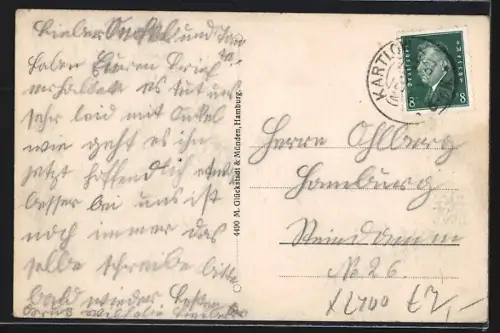 Lieber Onkel und Tante
haben Euren Brief
erhalten es tut uns
sehr leid mit Onkel
wie geht es ihm
jetzt hoffendlich etwas
besser bei uns ist
noch immer das
selbe schreibe bitte
bald wieder besten
Gruß
4490 M. Glückstadt & Münden, Hamburg.
DEUTSCHES REICH
8 8
KARTIO
Herrn Ohlberg
Hamburg
Steindamm
No 26.